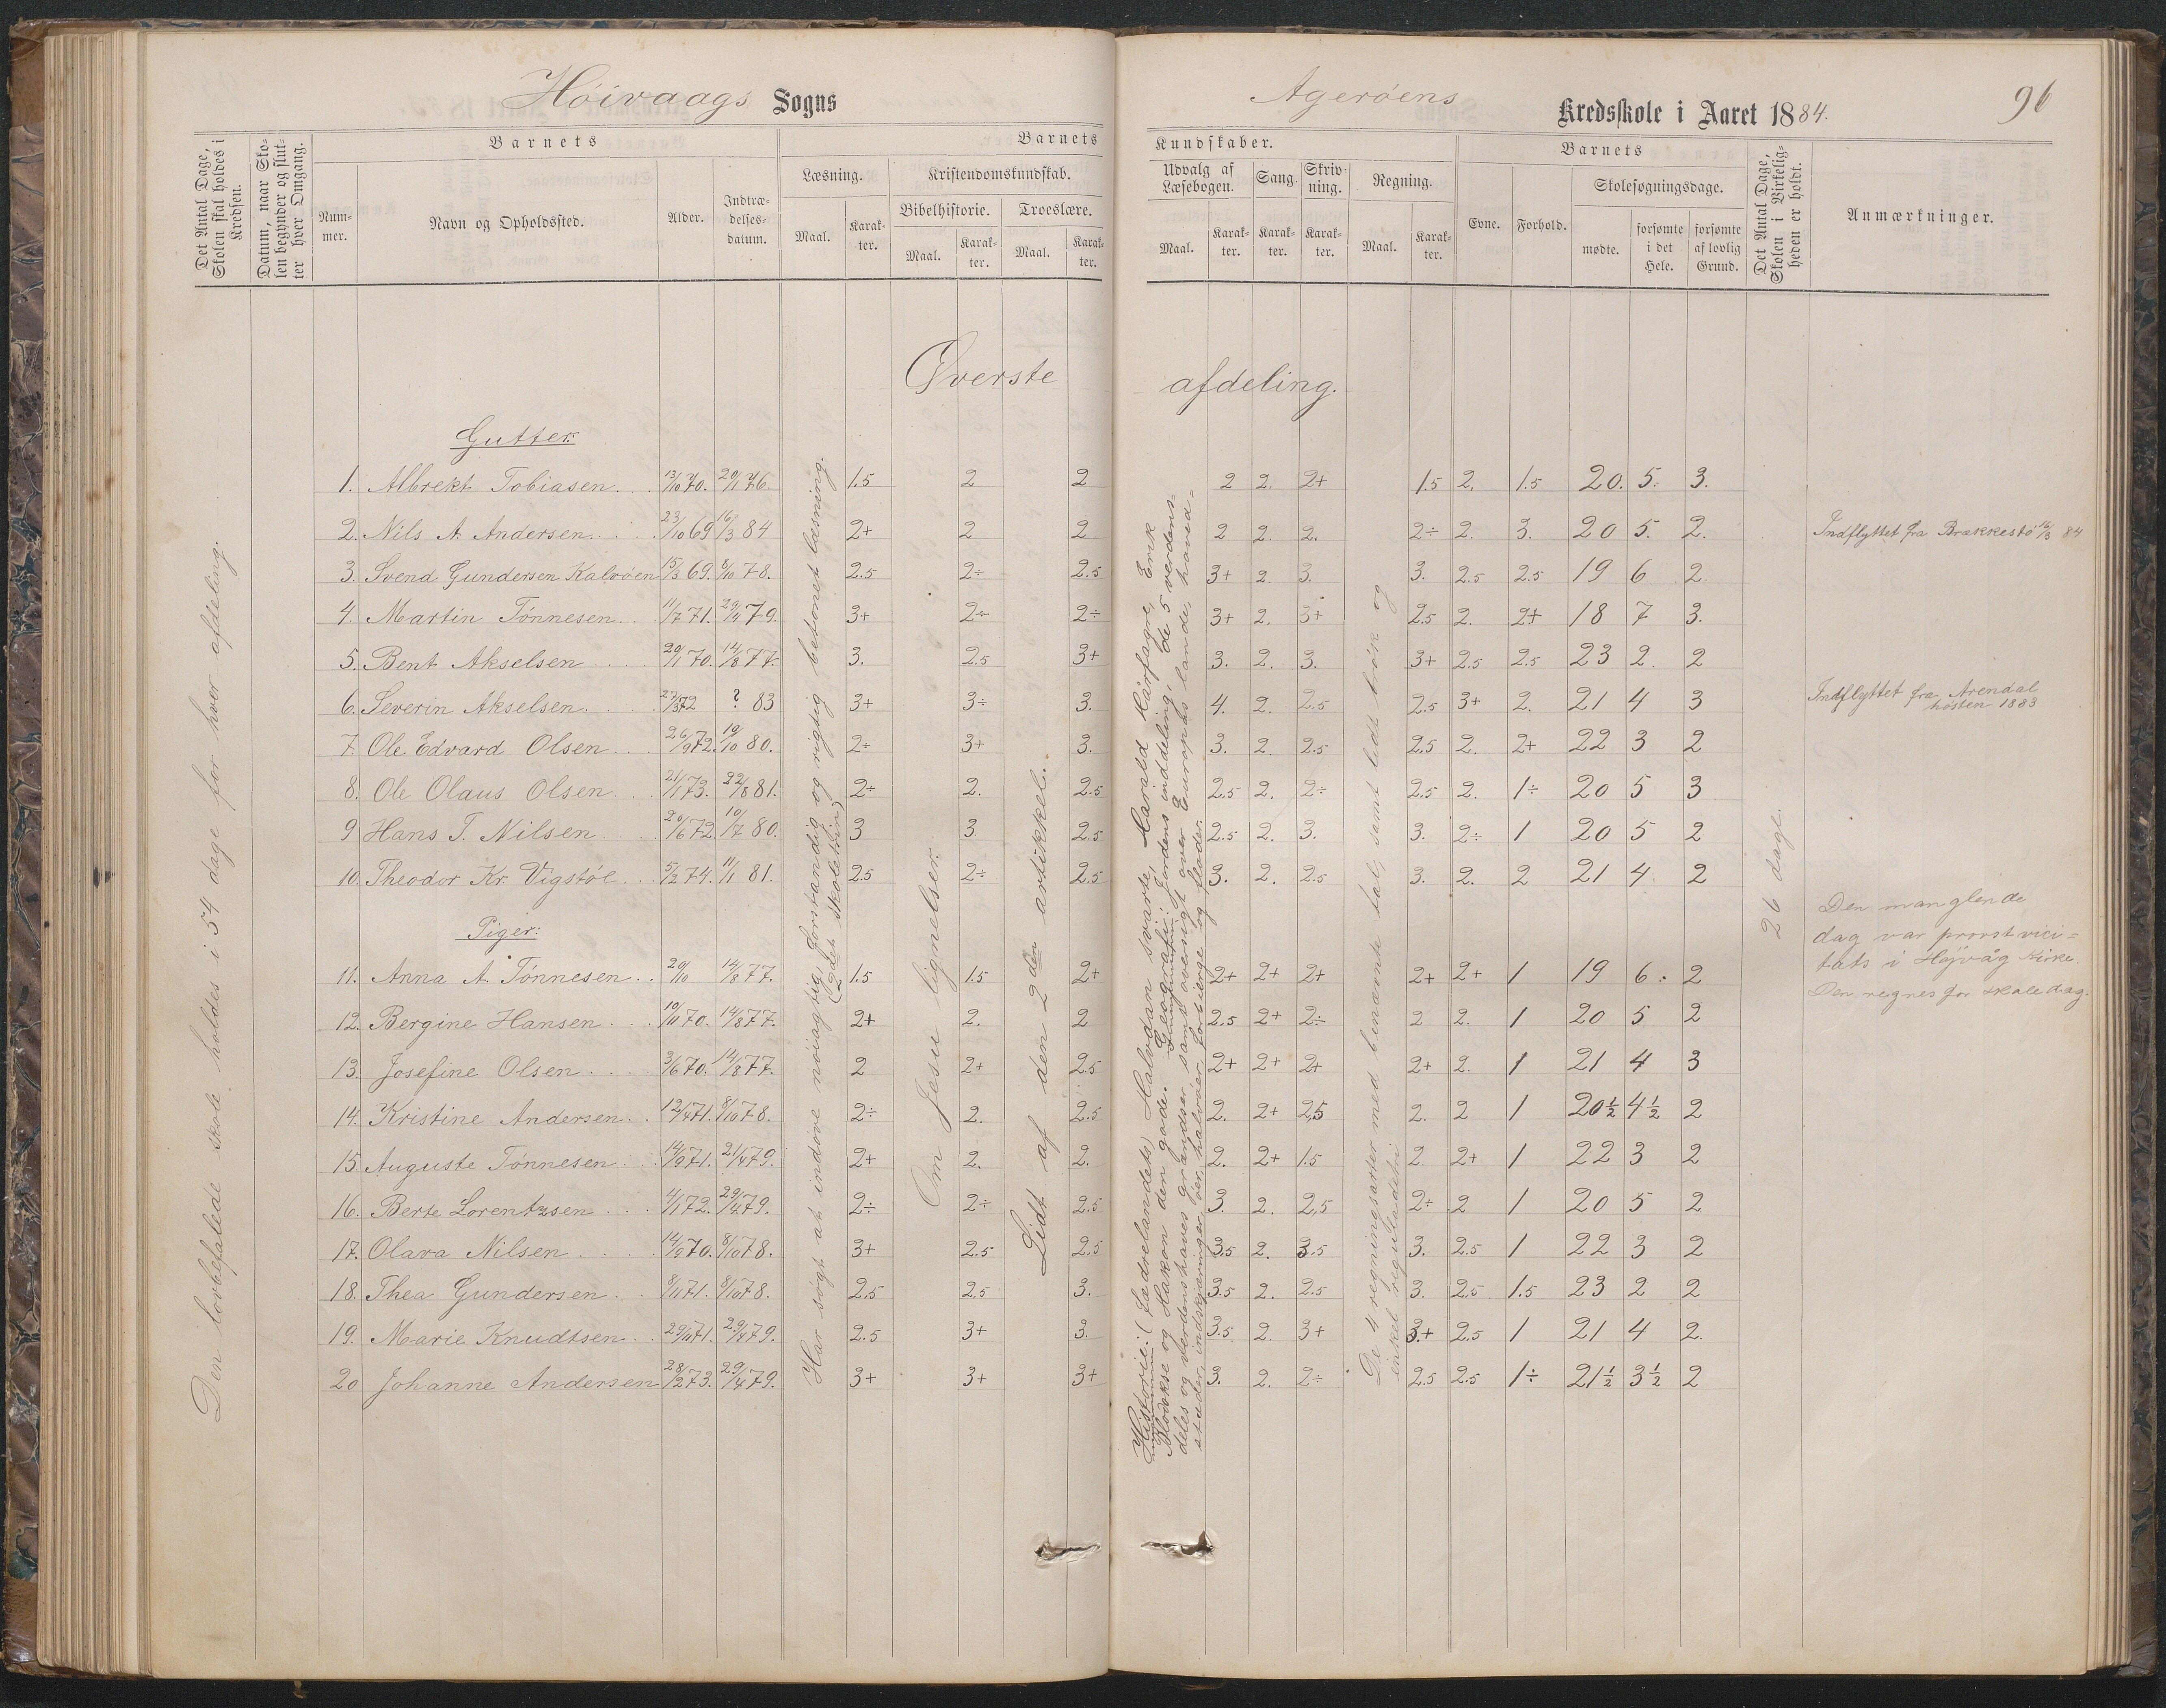 Høivaags Sogns
Agerøens Kredsskole i Aaret 1884.
96
Det Antal Dage, Skolen skal holdes i Kredsen.
Datum, naar Skolen begynder og slutter hver Omgang.
Barnets
Nummer.
Navn og Opholdssted.
Alder.
Indtrædelsesdatum.
Barnets
Læsning.
Maal.
Karakter.
Kristendomskundskab.
Bibelhistorie.
Maal.
Karakter.
Troeslære.
Maal.
Karakter.
Kundskaber.
Udvalg af Læsebogen.
Maal.
Karakter.
Sang.
Karakter.
Skrivning.
Karakter.
Regning.
Maal.
Karakter.
Barnets
Evne.
Forhold.
Skolesøgningsdage.
mødte.
forsømte i det Hele.
forsømte af lovlig Grund.
Det Antal Dage, Skolen i Virkeligheden er holdt.
Anmærkninger.
Øverste afdeling.
Den lovbefalede skole holdes i 54 dage for hver afdeling.
Har søgt at indøve nøiagtig, forstandig og rigtig betonet læsning.
(2det skoletrin)
Om Jesu lignelser.
Lidt af den 2den artikkel.
Historie: (Fædrelandets) Halvdan svarte, Harald Hårfagre, Erik
Blodøkse og Håkon den gode. Geografi: Jordens inddeling, de 5 verdens-
deles og verdenshaves grændser, samt oversigt over Europas lande, hoved-
stæder, indskjæringer, øer, halvøer, forbjerge og floder.
De 4 regningsarter med benævnte tal, samt lidt brøk og
enkel reguladetri
26 dage.
Gutter:
1. Albrekt Tobiasen 13/10 70. 20/11 76. 1.5 2 2 2 2. 2+ 1.5 2. 1.5 20. 5. 3.
2. Nils A. Andersen 23/10 69 16/3 84 2+ 2 2 2 2. 2. 2÷ 2. 3. 20 5. 2. Indflyttet fra Brækkestø 16/3 84
3. Svend Gundersen Kalvøen 15/3 69. 8/10 78. 2.5 2÷ 2.5 3+ 2. 3. 3. 2.5 2.5 19 6 2.
4. Martin Tønnesen 11/7 71. 29/4 79. 3+ 2÷ 2÷ 3+ 2. 3+ 2.5 2. 2+ 18 7 3.
5. Bent Akselsen 20/1 70. 14/8 77. 3. 2.5 3+ 3. 2. 3. 3+ 2.5 2.5 23 2. 2
6. Severin Akselsen 27/3 72 ? 83 3+ 3÷ 3. 4. 2. 2.5 2.5 3+ 2. 21 4 3 Indflyttet fra Arendal høsten 1883
7. Ole Edvard Olsen 26/9 72. 10/10 80. 2÷ 3+ 3. 3. 2. 2.5 2.5 2. 2+ 22 3 2
8. Ole Olaus Olsen 21/1 73. 22/8 81. 2÷ 2. 2.5 2.5 2. 2÷ 2.5 2. 1÷ 20 5 3
9 Hans T. Nilsen 20/6 72. 10/7 80. 3 3. 2.5 2.5 2. 3. 3. 2÷ 1 20 5 2
10. Theodor Kr Vigstøl 5/2 74. 11/1 81. 2.5 2÷ 2.5 3. 2. 2.5 3. 2. 2 21 4 2
Den manglende
dag var provstvici-
tats i Højvåg Kirke.
Den regnes for skoledag.
Piger:
11. Anna A. Tønnesen 20/10 14/8 77. 1.5 1.5 2+ 2+ 2+ 2+ 2+ 2+ 1 19 6. 2
12. Bergine Hansen 10/11 70. 14/8 77. 2+ 2. 2 2.5 2+ 2÷ 2 2. 1 20 5 2
13. Josefine Olsen 3/6 70. 14/8 77. 2 2+ 2.5 2+ 2+ 2+ 2+ 2. 1 21 4 3
14. Kristine Andersen 12/4 71. 8/10 78. 2÷ 2. 2.5 2. 2+ 2,5 2. 2 1 20½ 4½ 2
15. Auguste Tønnesen 14/9 71. 21/4 79. 2+ 2. 2. 2. 2+ 1.5 2. 2+ 1 22 3 2
16. Berte Lorentzsen 4/1 72. 29/4 79. 2÷ 2÷ 2.5 3. 2. 2,5 2÷ 2 1 20 5 2
17. Olava Nilsen 14/9 70. 8/10 78. 3+ 2.5 2.5 3.5 2. 3.5 3. 2.5 1 22 3 2
18. Thea Gundersen 8/11 71. 8/10 78. 2.5 2.5 3. 3.5 2. 2.5 3. 2.5 1.5 23 2 2
19. Marie Knudtsen 29/11 71. 29/4 79. 2.5 3+ 3. 3.5 2. 3+ 3.+ 2.5 1 21 4 2.
20 Johanne Andersen 28/2 73. 29/4 79. 3+ 3+ 3+ 3. 2. 2÷ 2.5 2.5 1÷ 21½ 3½ 2